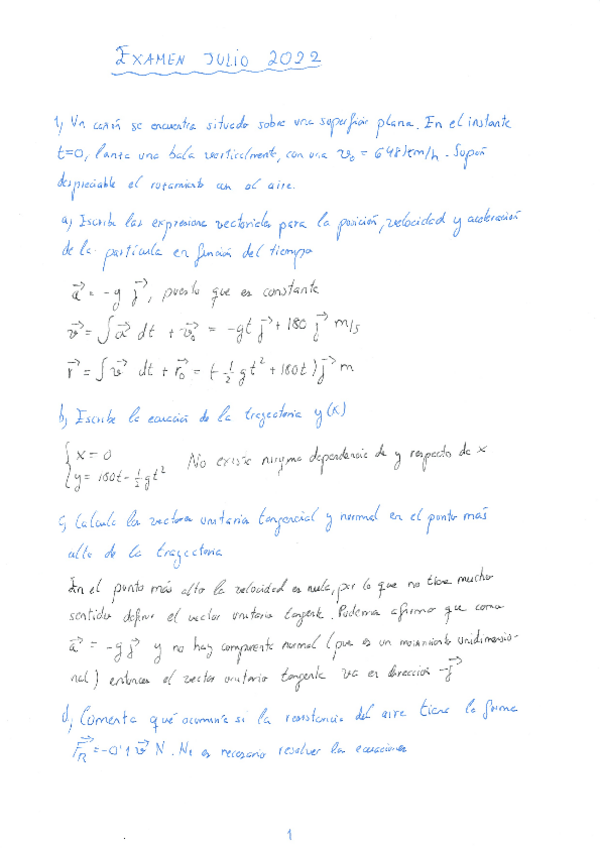 EXAMEN JULIO 2022
1) Un cañón se encuentra situado sobre una superficie plana. En el instante
t=0, lanza una bala verticalmente, con una v₀ = 648 km/h. Supón
despreciable el rozamiento con el aire.
a) Escribe las expresiones vectoriales para la posición, velocidad y aceleración
de la partícula en función del tiempo
a⃗ = -g j⃗, puesto que es constante
v⃗ = ∫ a⃗ dt + v⃗₀ = -gt j⃗ + 180 j⃗ m/s
r⃗ = ∫ v⃗ dt + r⃗₀ = (-½ g t² + 180t) j⃗ m
b) Escribe la ecuación de la trayectoria y(x)
{ x = 0
{ y = 180t - ½gt² No existe ninguna dependencia de y respecto de x
c) Calcula los vectores unitarios tangencial y normal en el punto más
alto de la trayectoria
En el punto más alto la velocidad es nula, por lo que no tiene mucho
sentido definir el vector unitario tangente. Podemos afirmar que como
a⃗ = -g j⃗ y no hay componente normal (pues es un movimiento unidimensio-
nal) entonces el vector unitario tangente va en dirección -j⃗
d) Comenta qué ocurriría si la resistencia del aire tiene la forma
F⃗_R = -0'1 v⃗ N. No es necesario resolver las ecuaciones
1